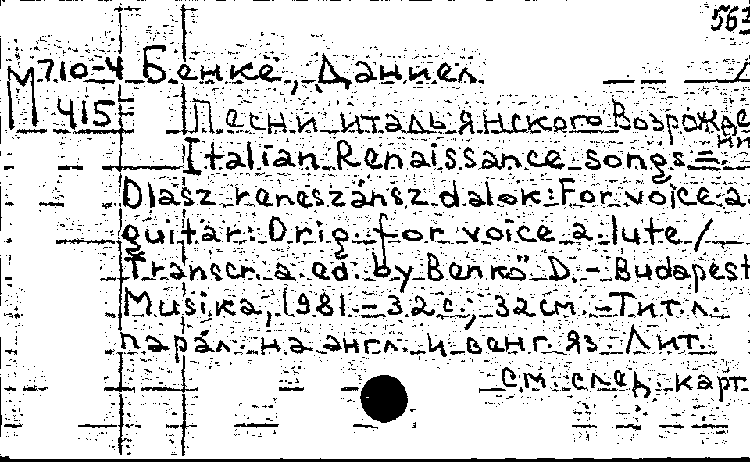 563
М 710-4 Бенкё, Даниел
М 415 Песни итальянского Возрожде
ния
Italian Renaissance songs =
Olasz reneszánsz dalok: For voice a.
guitar: Orig. for voice a. lute /
Transcr. a. ed. by Benkö D. - Budapest
Musika, 1981. - 32 с.; 32 см. - Тит. л.
парал. на англ. и венг. яз. Лит.
см. след. карт